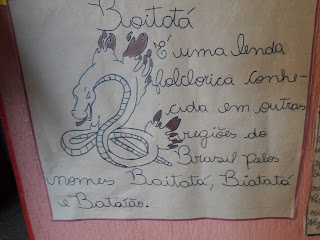 Boitatá
É uma lenda
folclorica conhe-
cida em outras
regiões do
Brasil pelos
nomes Baitatá, Biatatá
e Batatão.